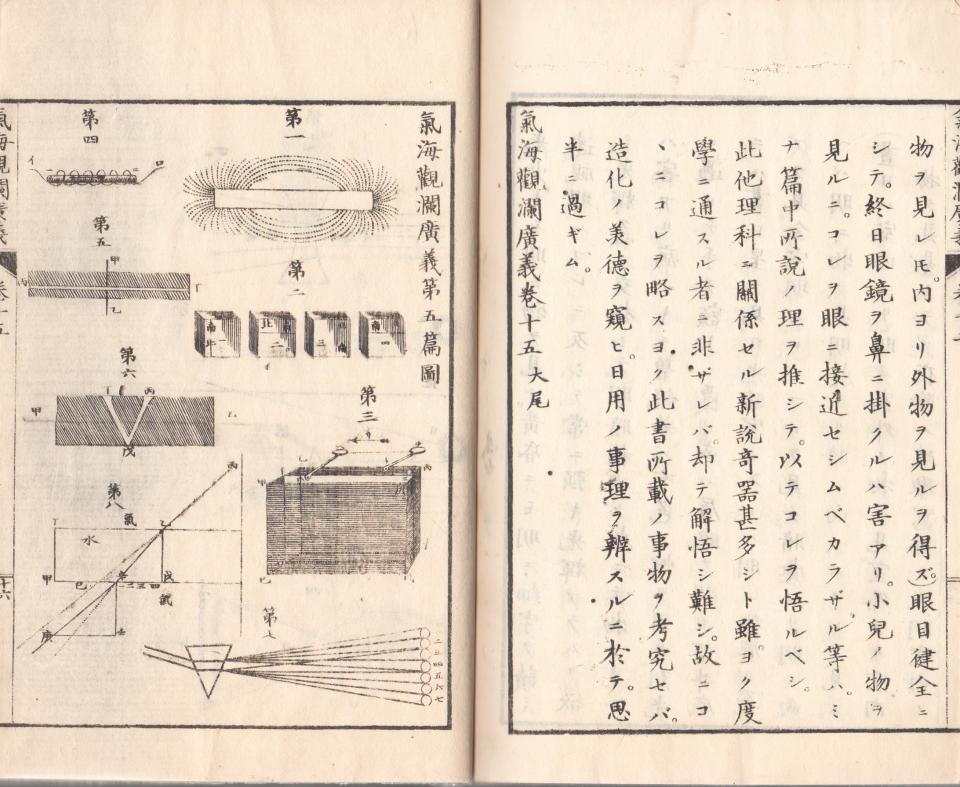 物ヲ見レ𪜈。内ヨリ外物ヲ見ルヲ得ズ。)眼目健全ニ
シテ。終日眼鏡ヲ鼻ニ掛クルハ害アリ。小兒ノ物ヲ
見ルニ。コレヲ眼ニ接近セシムベカラザル等ハ。ミ
ナ篇中所說ノ理ヲ推シテ。以テコレヲ悟ルベシ。
此他理科ニ關係セル新說奇器甚多シト雖。ヨク度
學ニ通スル者ニ非ザレバ。却テ解悟シ難シ。故ニコ
ヽニコレヲ略スヨク此書所載ノ事物ヲ考究セバ。
造化ノ美德ヲ窺ヒ。日用ノ事理ヲ辨スルニ於テ。思
半ニ過ギム。
氣海觀瀾廣義卷十五大尾
氣海觀瀾廣義第五篇圖
第一
第二
南 四
三
北 二
南 北
第三
甲
丙
己
第四
イ
ロ
第五
甲
乙
丙
丁
第六
丁 丙
甲
乙
戊
第八
丙
丁 氣 乙
水
甲 己 辛 一 二 三 四 戊
氣
庚 壬
第七
一 二 三 四 五 六 七
氣海觀瀾廣義 卷十五
十六